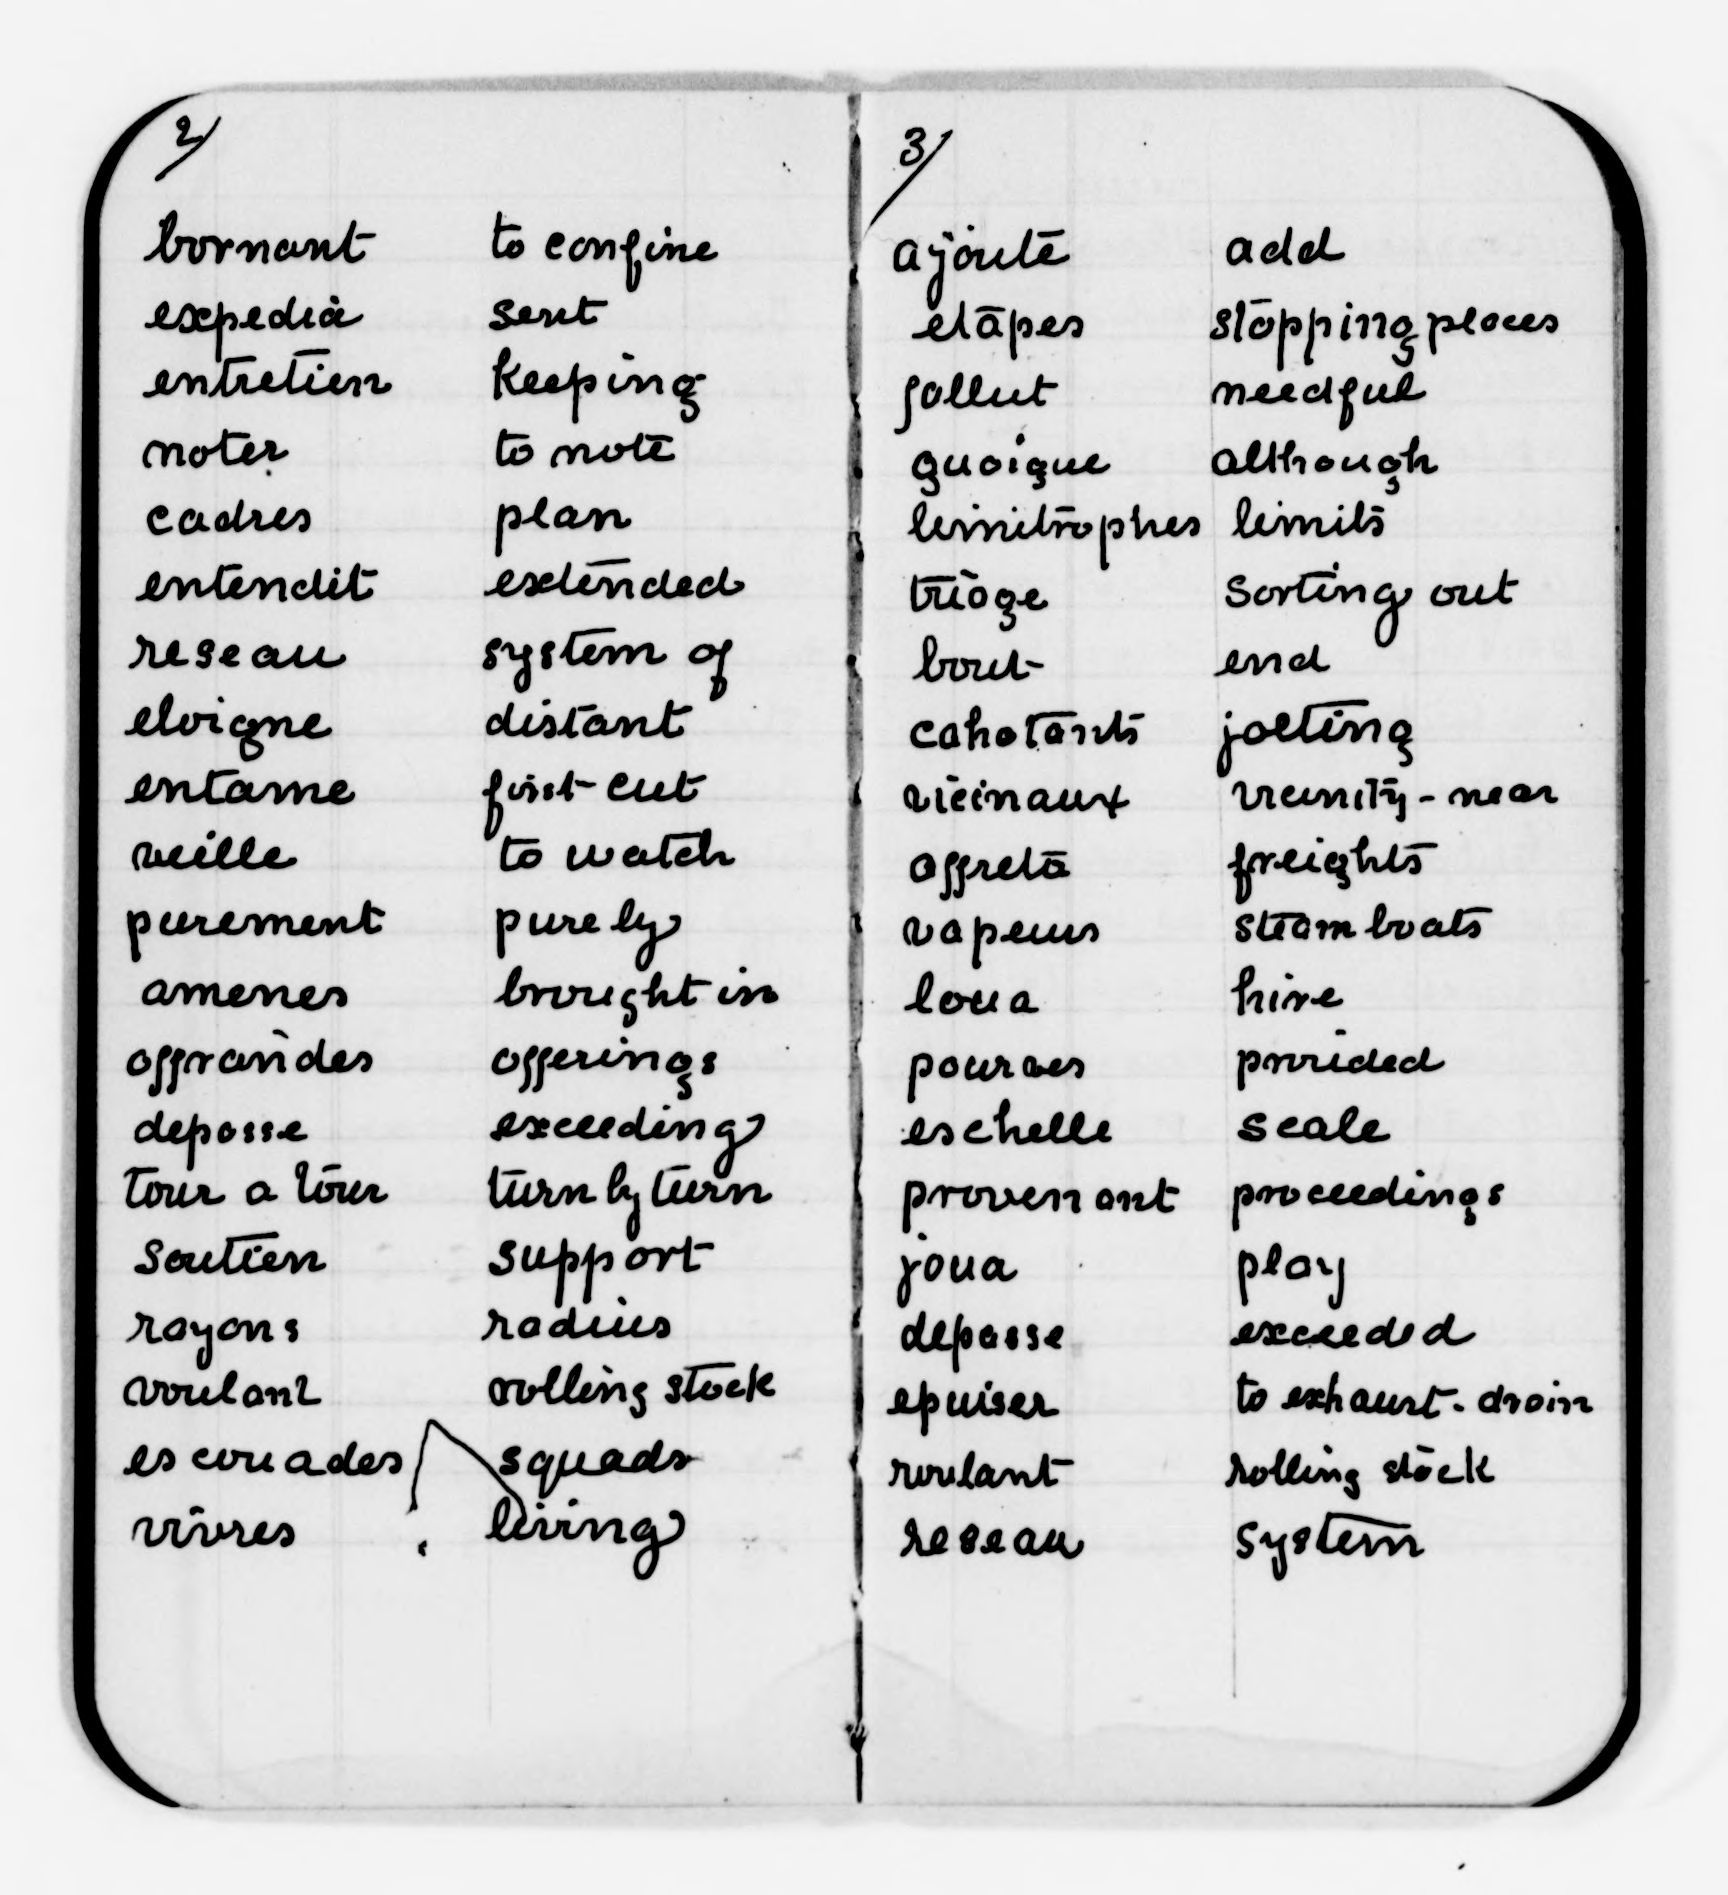 2/
bornant to confine
expedia sent
entretien keeping
noter to note
cadres plan
entendit extended
reseau system of
eloigne distant
entame first cut
veille to watch
purement purely
amenes brought in
offrandes offerings
depasse exceeding
tour a tour turn by turn
soutien support
rayons radius
roulant rolling stock
escouades squads
vivres living
3/
ajoute add
etapes stopping places
fallut needful
quoique although
limitrophes limits
triage sorting out
bout end
cahotants jolting
vicinaux vicinity - near
affreta freights
vapeurs steam boats
loua hire
pourves provided
eschelle scale
provenant proceedings
joua play
depasse exceeded
epuiser to exhaust - drain
roulant rolling stock
reseau system